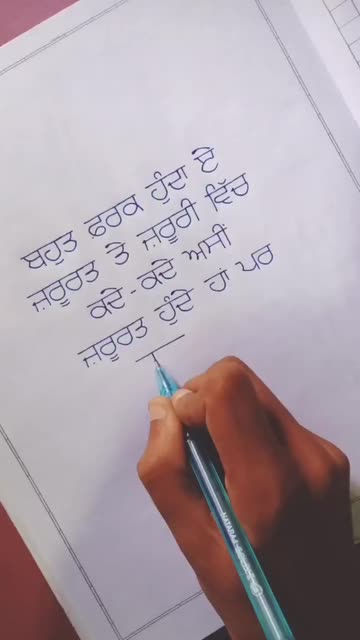 ਬਹੁਤ ਫ਼ਰਕ ਹੁੰਦਾ ਏ
ਜ਼ਰੂਰਤ ਤੇ ਜ਼ਰੂਰੀ ਵਿੱਚ
ਕਦੇ-ਕਦੇ ਅਸੀਂ
ਜ਼ਰੂਰਤ ਹੁੰਦੇ ਹਾਂ ਪਰ
NATARAJ